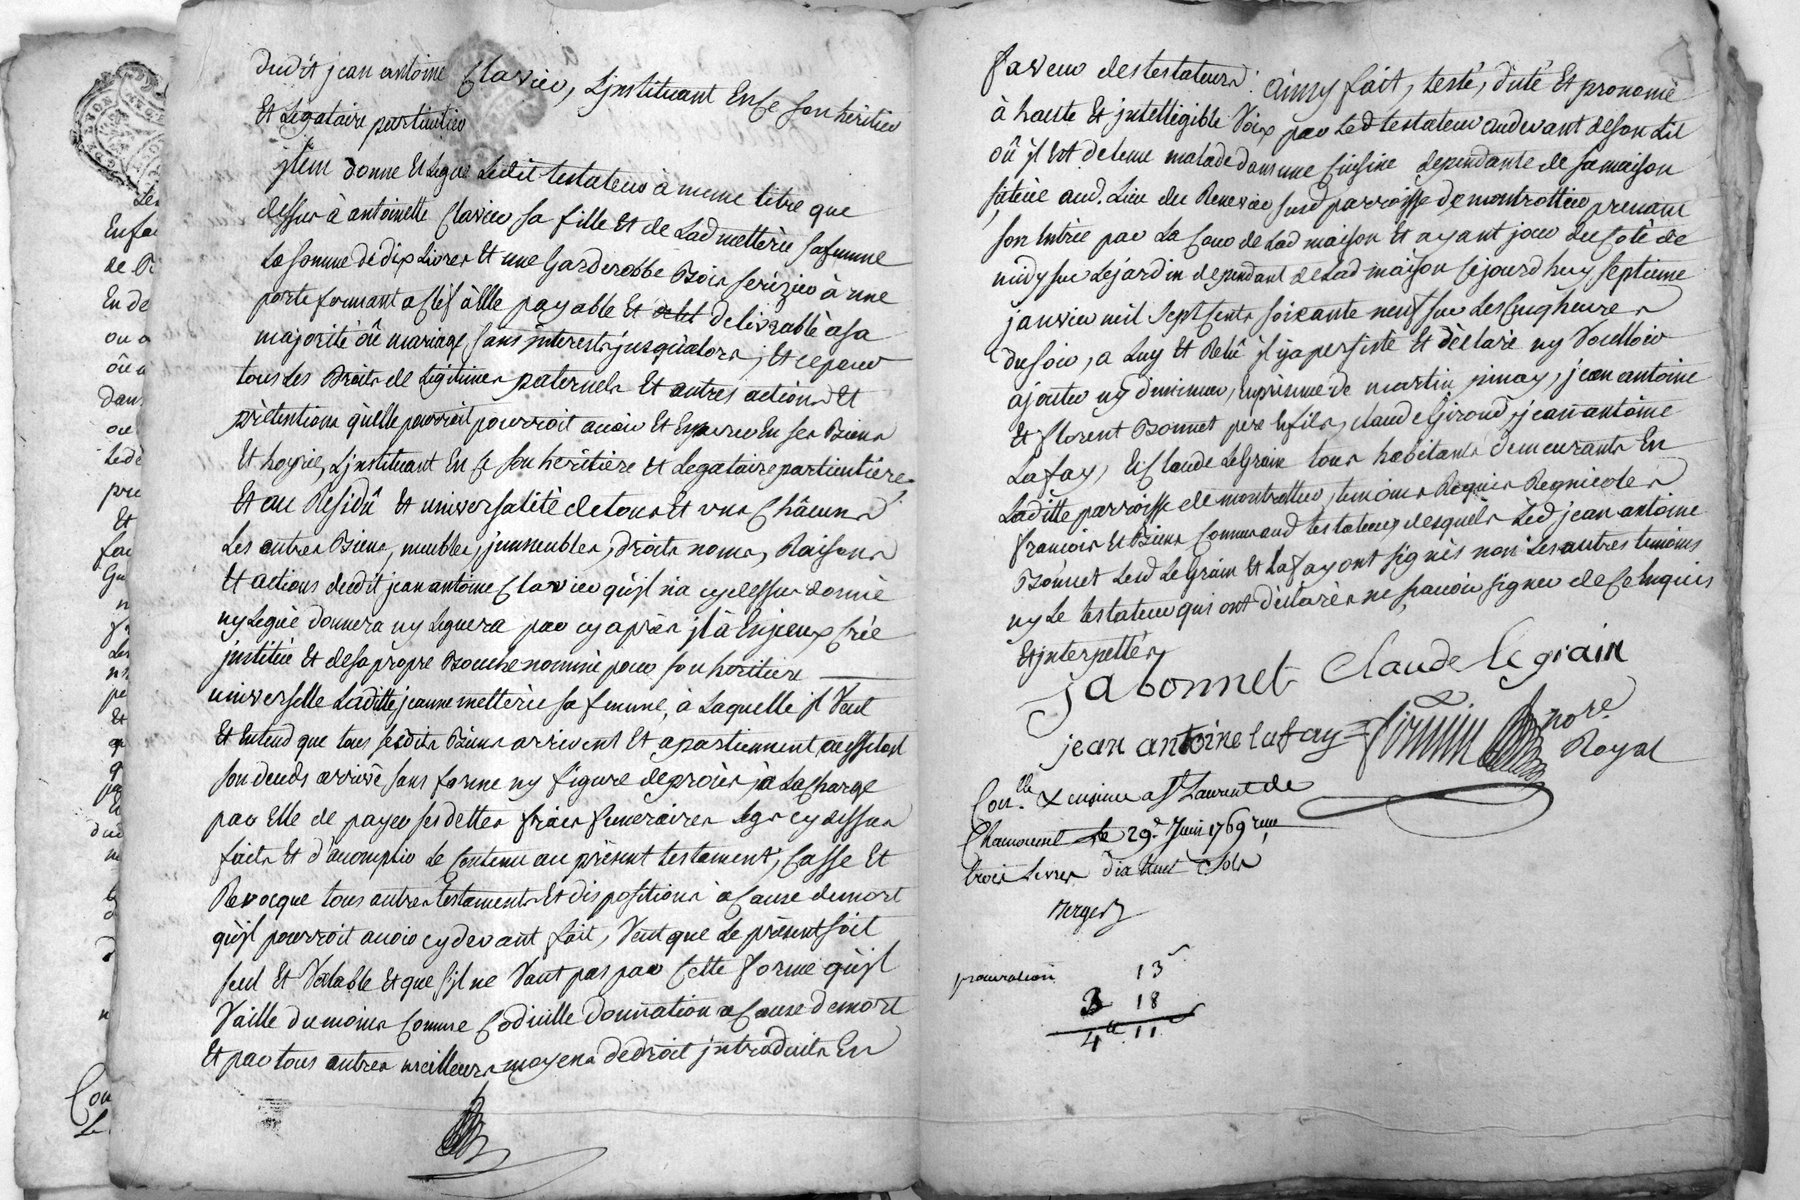 dudit jean antoine Clavier, L'jnstituant En Ce son héritier
Et Légataire particulier
jtem donne Et Legue Ledit testateur à meme titre que
dessus à antoinette Clavier sa fille Et de Lad metterie sa femme
La somme de dix Livres Et une Garderobbe Bois Serizier à une
porte fermant a Clef à Elle payable Et delivrable à sa
majorité oû mariage sans interests jusqu'alors, Et ce pour
tous Les Droits de Legitimes paternels Et autres actions Et
prétentions qu'elle pourroit pourroit avoir Et En ses Biens
Et hoyrie, L'jnstituant En Ce son heritière Et Legataire particulière
Et au Résidû Et universalité de tous Et uns Châcuns
Les autres Biens, meubles, jmmeubles, droits noms, Raisons
Et actions dudit jean antoine Clavier qu'jl n'a cy dessus donné
ny Legué donnera ny Leguera par cy après jl à Crée
jnstitué Et de sa propre Bouche nommé pour son heritiere
universelle Laditte jeanne metterie sa femme, à Laquelle jl Veut
Et Entend que tous sesdits Biens arrivent Et apartiennent aussitost
son decéds arrivé sans forme ny figure de procès à La charge
par Elle de payer ses dettes frais funeraires Legs cy dessus
faits Et d'acomplir Le Contenu au présent testament, Casse Et
Revocque tous autres testaments Et dispositions a Cause de mort
qu'jl pourroit avoir cy devant fait, Veut que Le présent soit
seul Et Valable Et que s'jl ne Vaut pas par Cette forme qu'jl
Vaille du moins Comme Codicille Donnation a Cause de mort
Et par tous autres meilleurs moyens de droit jntroduits En
faveur des testateurs. Ainsy fait, testé, dicté Et prononcé
à haute Et jntelligible Voix par Led testateur au devant de son Lit
oû jl Est detenu malade dans une Cuisine dependante de sa maison
située aud. Lieu du susd parroisse de montrottier prenant
son Entrée par La Cour de Lad maison Et ayant jour du Coté de
midy sur Le jardin dependant de Lad maison Cejourd'huy septieme
janvier mil sept Cents soixante neuf sur Les Cinq heures
du soir, a Luy Et Relû jl y a persisté Et déclaré ny Voulloir
ajouter ny diminuer, En présence de martin jean antoine
Et florent Bonnet pere Et fils, claude Giroud, jean antoine
Lafay, Et Claude LeGrain tous habitants demeurants En
Laditte parroisse de montrottier, temoins Requis Regnicoles
françois Et Biens Connus aud testateur desquels Led jean antoine
Bonnet Led LeGrain Et Lafay ont signés non Les autres temoins
ny Le testateur qui ont déclarés ne scavoir signer de Ce Enquis
Et jnterpellés
ja bonnet Claude legrain
jean antoine lafay
nore
Royal
a St Laurent de
Chamousset Le 29.e Juin 1769
trois Livres dix huit sols
Berger
13
3 18
4 11